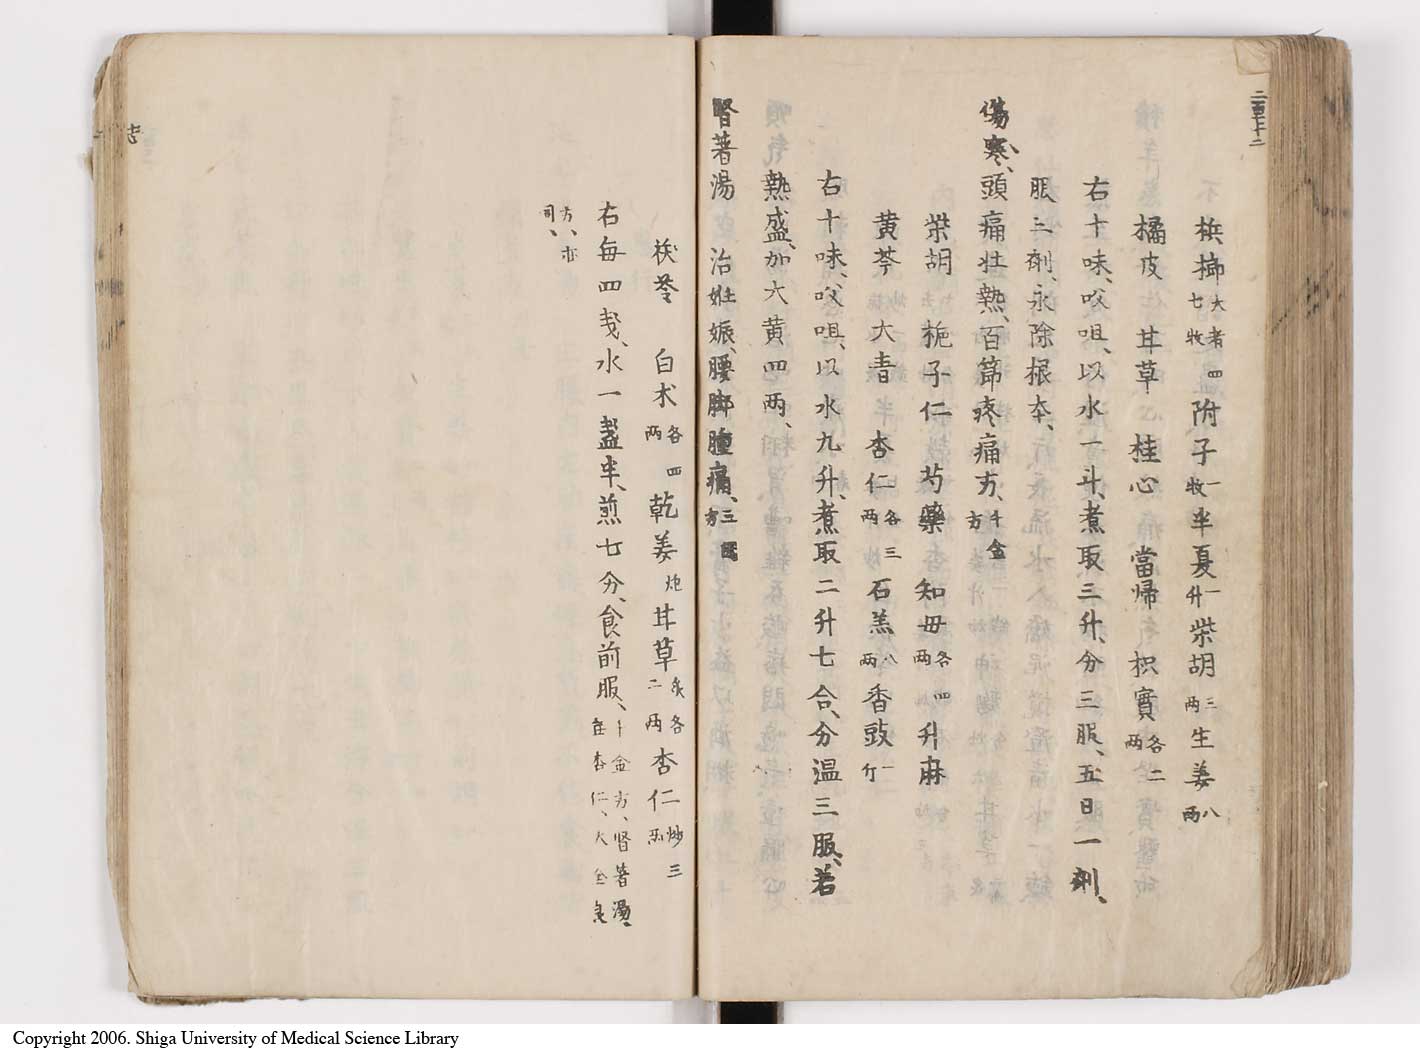 二百七十二
梹榔大者四七枚附子一枚半夏一升柴胡三两生姜八两
橘皮 甘草 桂心 當帰 枳實各二两
右十味、㕮咀、以水一斗、煮取三升、分三服、五日一剤、
服三剤、永除根本、
傷寒、頭痛壮熱、百節疼痛方、千金方
柴胡 栀子仁 芍藥 知毋各四两 升麻
黄芩 大青 杏仁各三两 石羔八两 香豉一斤
右十味、㕮咀、以水九升、煮取二升七合、分温三服、若
熱盛、加大黄四两、
腎著湯 治姙娠、腰脚腫痛、三因方
茯苓 白术各四两 乾姜炮 甘草炙各二两 杏仁炒三两
右每四戋、水一盞半、煎七分、食前服、千金方、腎著湯、無杏仁、大全良
方、亦同、
志
Copyright 2006. Shiga University of Medical Science Library